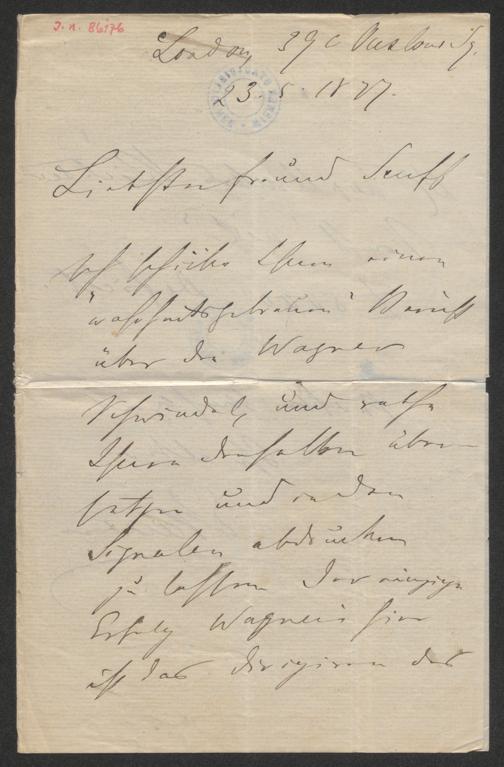 J. n. 86176
London, 39c
23. 5 1877.
Liebster Freund Senff
Ich schicke Ihnen einen
"wahrheitsgetreuen" Bericht
über den Wagner
Schwindel, und rathe
Ihnen denselben über-
setzen und in den
Signalen abdrucken
zu lassen. Der einzige
Erfolg Wagners hier
ist das Dirigiren des